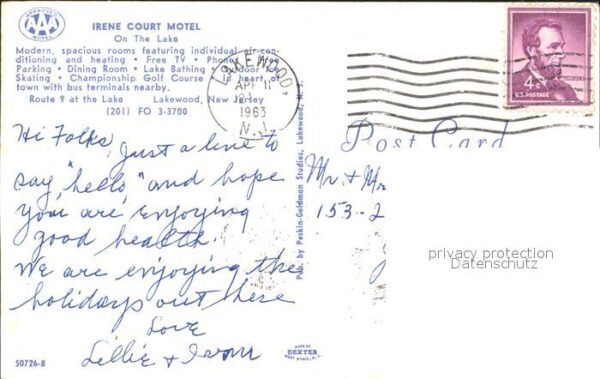 APPROVED
AAA
MOTEL
IRENE COURT MOTEL
On The Lake
Modern, spacious rooms featuring individual air-con-
ditioning and heating • Free TV • Phones •
Parking • Dining Room • Lake Bathing • Outdoor
Skating • Championship Golf Course • In heart of
town with bus terminals nearby.
Route 9 at the Lake Lakewood, New Jersey
(201) FO 3-3700
LAKEWOOD,
APR 11
1963
N.J.
4¢
U.S. POSTAGE
LINCOLN
Post Card
Hi Folks,
Just a line to
say "hello" and hope
you are enjoying
good health.
We are enjoying the
holidays out here
Love
Lillie +
Mr. + Mr
153-2
Pub. by Peskin-Goldman Studios, Lakewood, N. J.
privacy protection
Datenschutz
50726-B
MADE BY
DEXTER
WEST NYACK, N.Y.